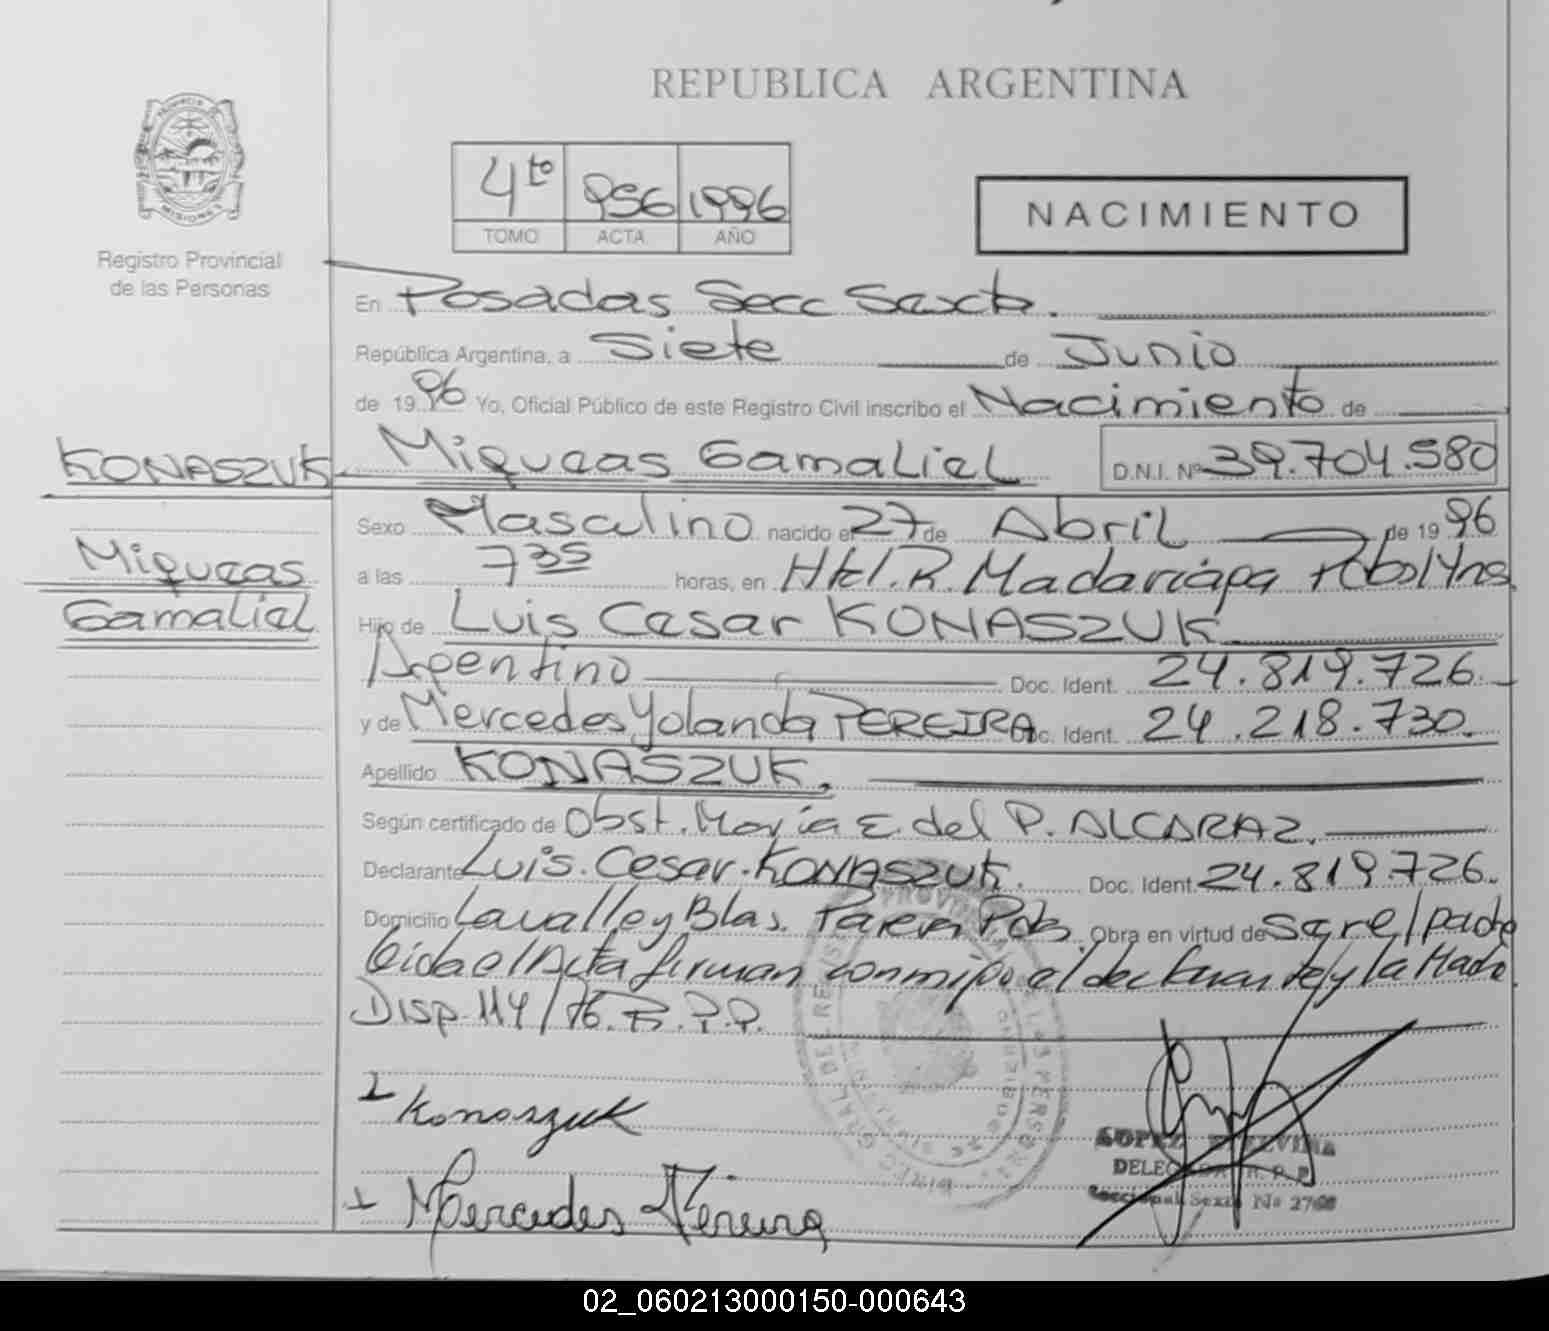 REPUBLICA ARGENTINA
PROVINCIA DE
MISIONES
Registro Provincial
de las Personas
4to 956 1996
TOMO ACTA AÑO
NACIMIENTO
En Posadas Secc Sexta.
República Argentina, a Siete de Junio
de 1996 Yo, Oficial Público de este Registro Civil inscribo el Nacimiento de
KONASZUK Miqueas Gamaliel D.N.I. Nº 39.704.580
Miqueas
Gamaliel
Sexo Masculino nacido el 27 de Abril de 1996
a las 7 35 horas, en Htel. R. Madariaga
Hijo de Luis Cesar KONASZUK
Argentino Doc. Ident. 24.819.726.
y de Mercedes Yolanda PEREIRA Doc. Ident. 24.218.730.
Apellido KONASZUK.
Según certificado de Obst. María E. del P. ALCARAZ.
Declarante Luis. Cesar. KONASZUK. Doc. Ident. 24.819.726.
Domicilio Lavalle y Blas. Parera Pdas. Obra en virtud de ser el padre
Leida el Acta firman conmigo el declarante y la Madre.
Disp. 114/76. R.P.P.
Konaszuk
Mercedes Pereira
LOPEZ
DELEGADA R. P. P.
Seccional Sexta Nº
02_060213000150-000643